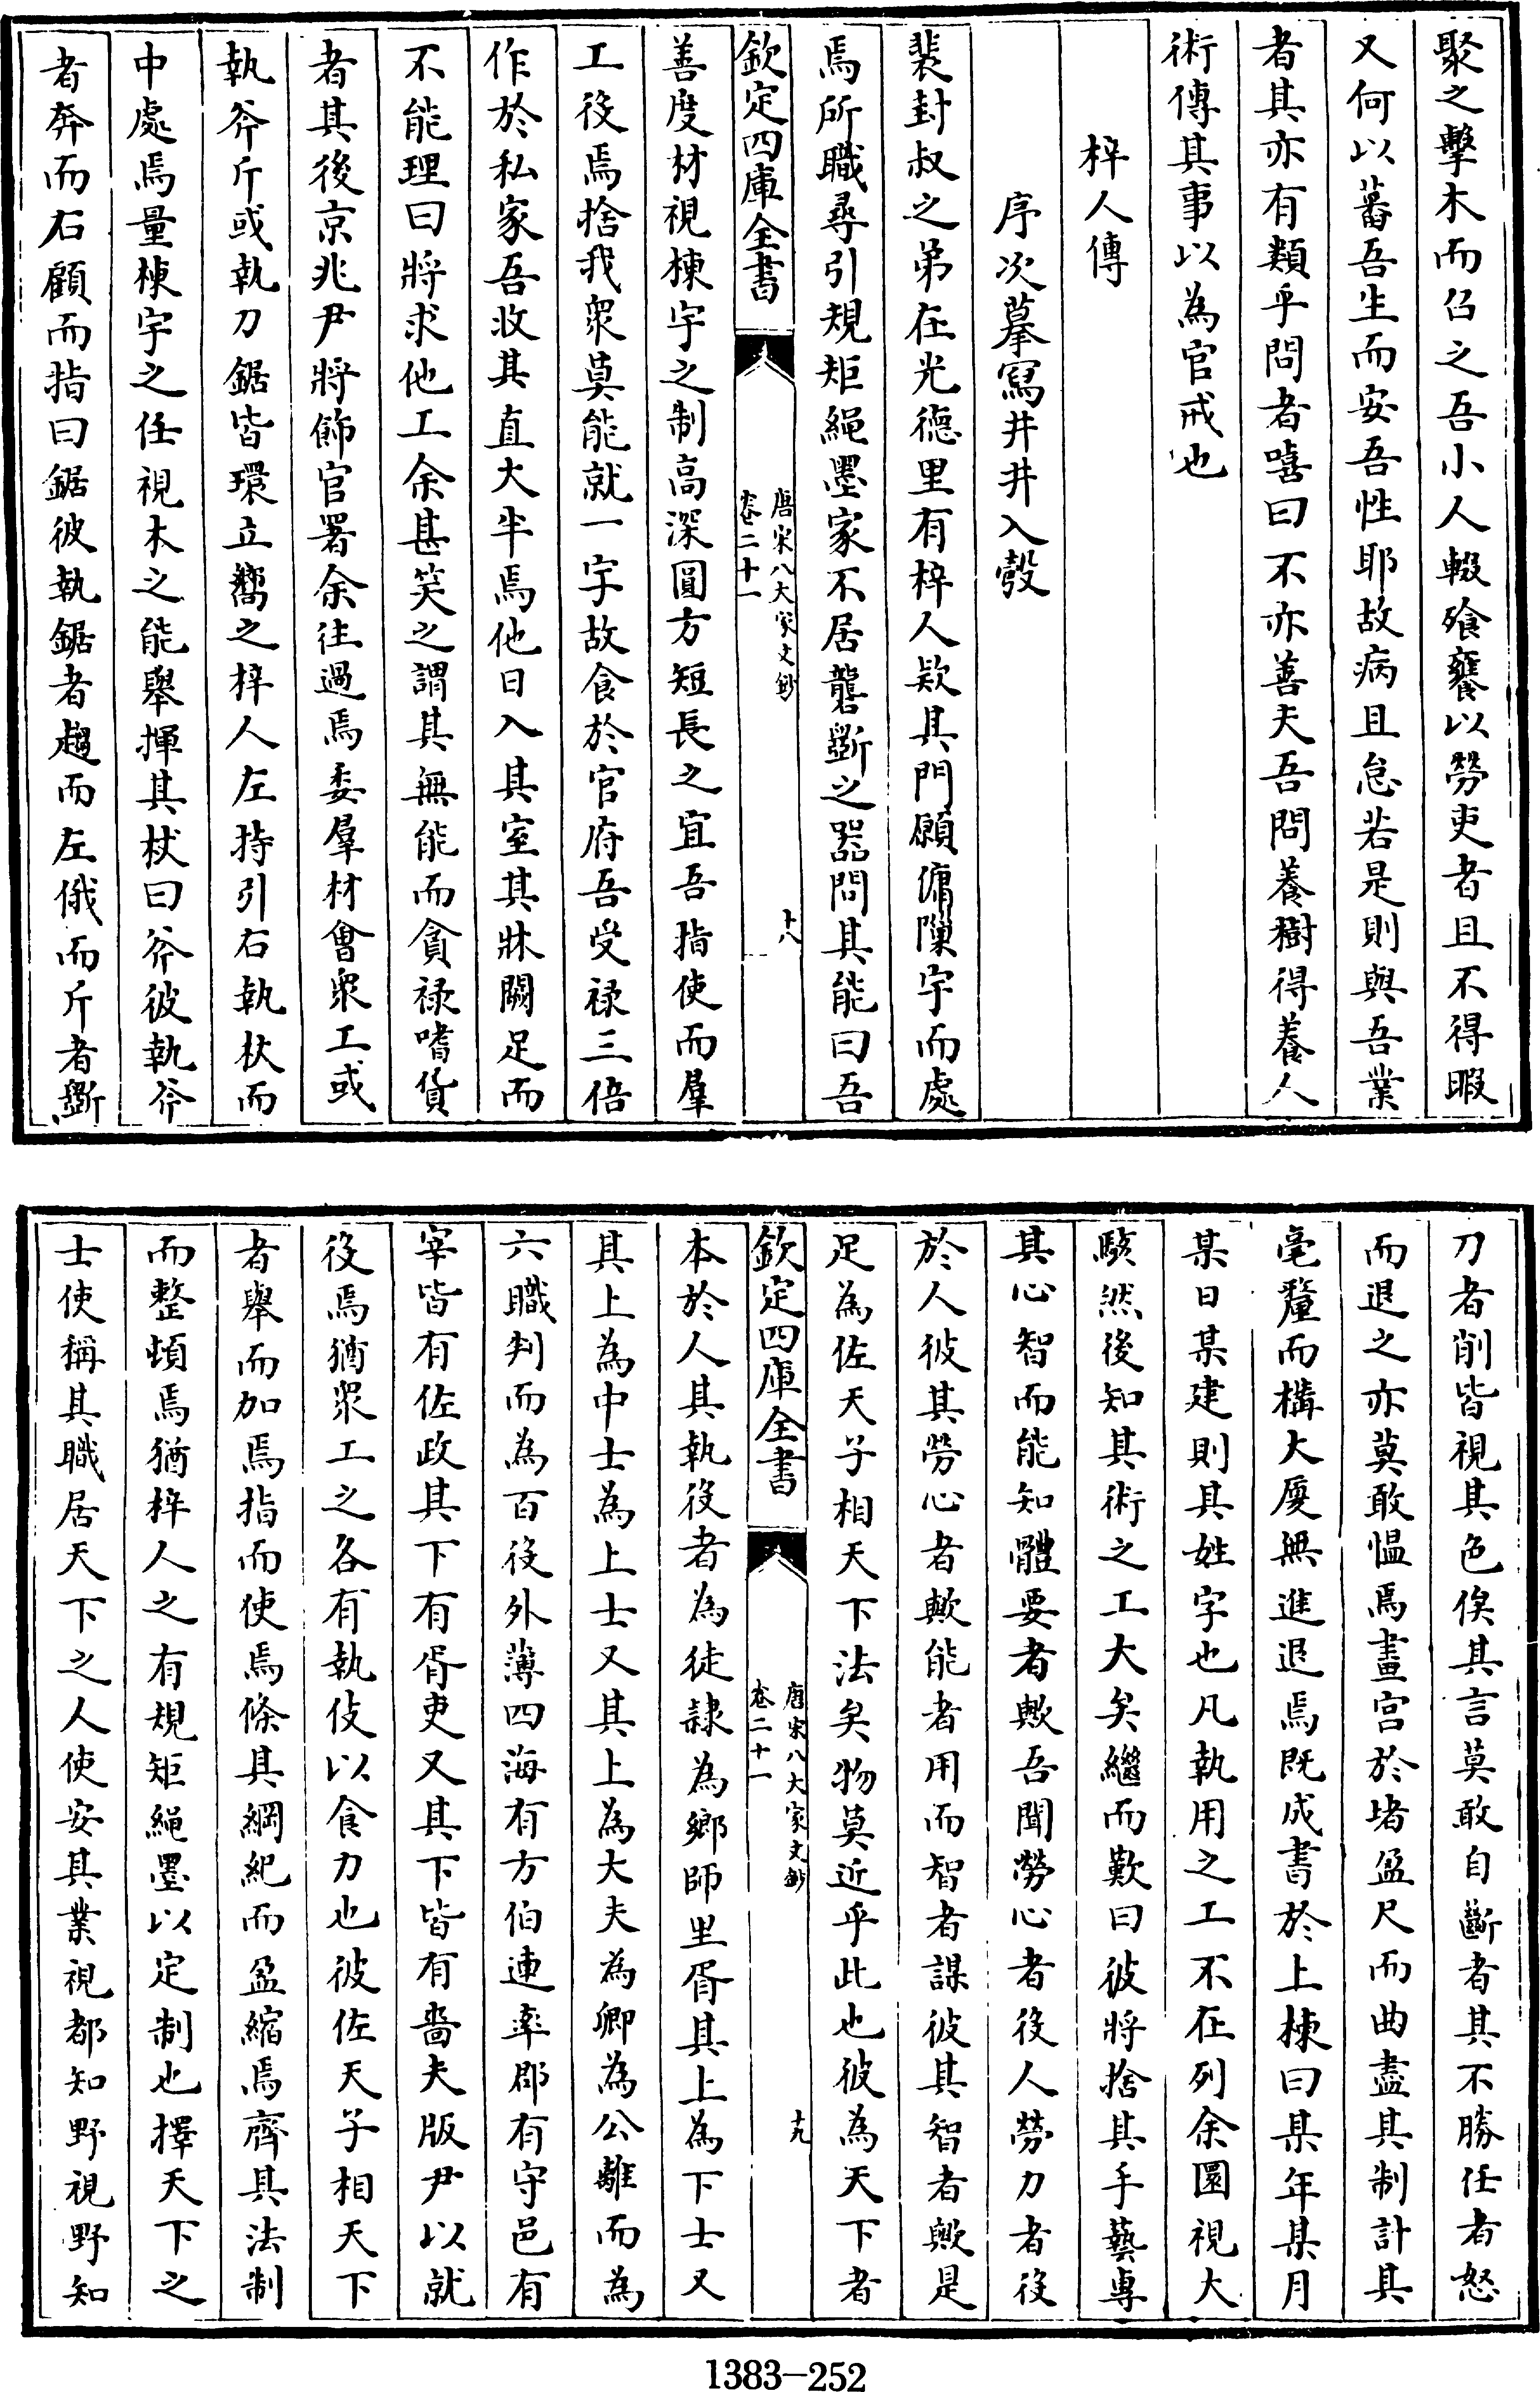 聚之擊木而召之吾小人輟飱饔以勞吏者且不得暇
又何以蕃吾生而安吾性耶故病且怠若是則與吾業
者其亦有類乎問者嘻曰不亦善夫吾問養樹得養人
術傳其事以為官戒也
梓人傳
序次摹寫井井入彀
裴封叔之弟在光德里有梓人欵其門願傭隟宇而處
焉所職尋引規矩繩墨家不居礱斲之器問其能曰吾
欽定四庫全書
唐宋八大家文鈔
卷二十一
十八
善度材視棟宇之制高深圓方短長之宜吾指使而羣
工役焉捨我衆莫能就一宇故食於官府吾受祿三倍
作於私家吾收其直大半焉他日入其室其牀闕足而
不能理曰將求他工余甚笑之謂其無能而貪祿嗜貨
者其後京兆尹將飾官署余往過焉委羣材會衆工或
執斧斤或執刀鋸皆環立嚮之梓人左持引右執杖而
中處焉量棟宇之任視木之能舉揮其杖曰斧彼執斧
者奔而右顧而指曰鋸彼執鋸者趨而左俄而斤者斲
刀者削皆視其色俟其言莫敢自斷者其不勝任者怒
而退之亦莫敢愠焉畫宫於堵盈尺而曲盡其制計其
毫釐而構大厦無進退焉既成書於上棟曰某年某月
某日某建則其姓字也凡執用之工不在列余圜視大
駭然後知其術之工大矣繼而歎曰彼將捨其手藝專
其心智而能知體要者歟吾聞勞心者役人勞力者役
於人彼其勞心者歟能者用而智者謀彼其智者歟是
足為佐天子相天下法矣物莫近乎此也彼為天下者
欽定四庫全書
唐宋八大家文鈔
卷二十一
十九
本於人其執役者為徒隸為鄉師里胥其上為下士又
其上為中士為上士又其上為大夫為卿為公離而為
六職判而為百役外薄四海有方伯連率郡有守邑有
宰皆有佐政其下有胥吏又其下皆有嗇夫版尹以就
役焉猶衆工之各有執伎以食力也彼佐天子相天下
者舉而加焉指而使焉條其綱紀而盈縮焉齊其法制
而整頓焉猶梓人之有規矩繩墨以定制也擇天下之
士使稱其職居天下之人使安其業視都知野視野知
1383-252